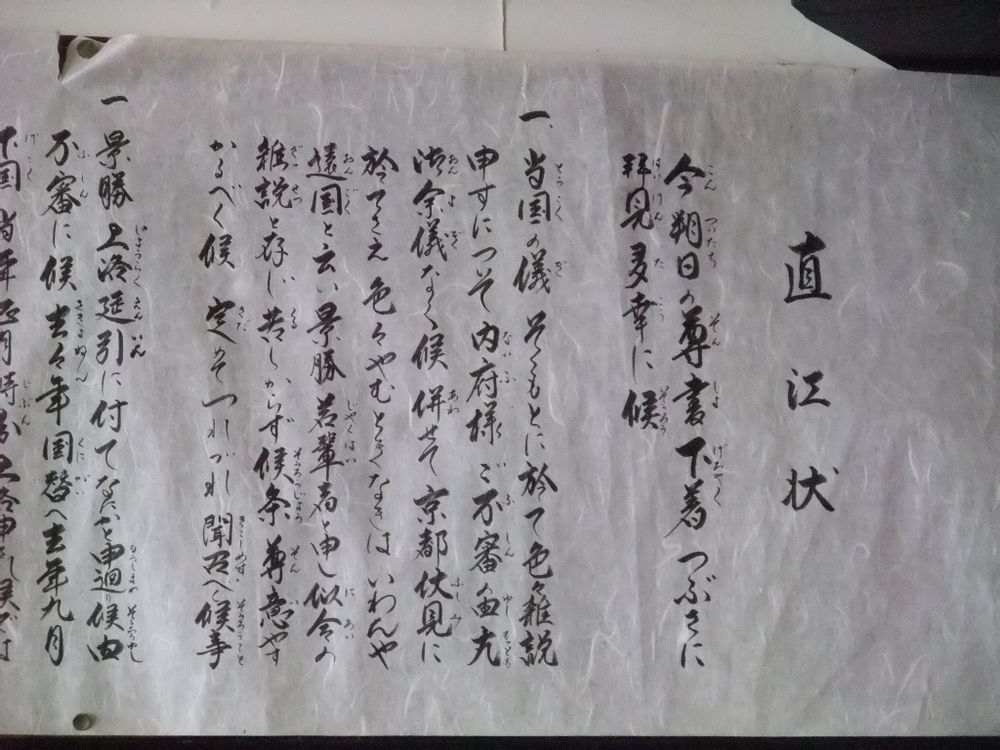 直江状
今朔日の尊書下着つぶさに
拝見多幸に候
一、当国の儀そこもとに於て色々雑説
申すについて内府様ご不審の由尤
御余儀なく候併せて京都伏見に
於てさえ色々やむときなきはいわんや
遠国と云い景勝若輩者と申し似合の
雑説と存じ苦しからず候条尊意やす
かるべく候定めてつれづれ聞召へ候事
一景勝上洛延引に付て申廻候由
不審に候去々年国替へ去年九月
下国当年正月時分上洛申され候ては